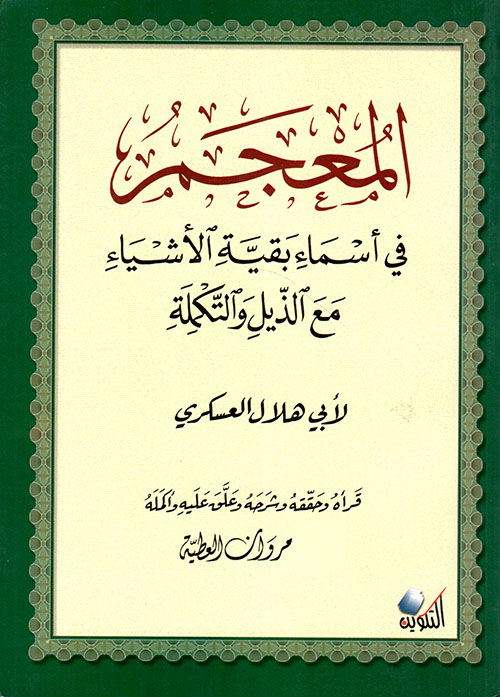 المُعْجَمُ
في أسْمَاءِ بَقِيَّةِ الأشْيَاءِ
مَعَ الذَّيلِ وَالتَّكْمِلَةِ
لأبي هلال العسكري
قَرأهُ وَحَقّقهُ وشَرحَهُ وَعَلَّقَ عَلَيهِ وأكمَلَهُ
مروان العطيّة
التكوين